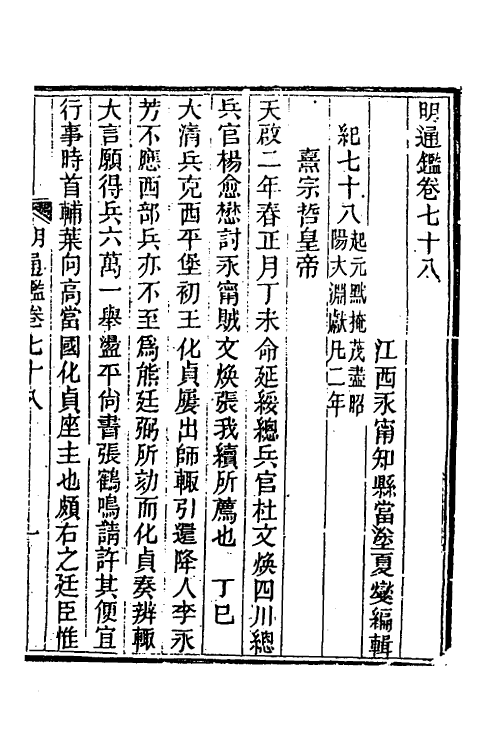 明通鑑卷七十八
江西永甯知縣當塗夏燮編輯
紀七十八起元黓掩茂盡昭
陽大淵獻凡二年
熹宗哲皇帝
天啟二年春正月丁未命延綏總兵官杜文煥四川總
兵官楊愈懋討永甯賊文煥張我續所薦也　丁巳
大清兵克西平堡初王化貞屢出師輒引還降人李永
芳不應西部兵亦不至爲熊廷弼所劾而化貞奏辨輒
大言願得兵六萬一舉盪平尙書張鶴鳴請許其便宜
行事時首輔葉向高當國化貞座主也頗右之廷臣惟
明通鑑卷七十八
一